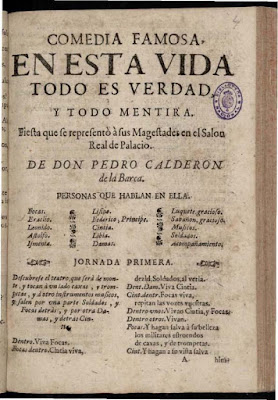 COMEDIA FAMOSA.
EN ESTA VIDA
TODO ES VERDAD,
Y TODO MENTIRA.
Fiesta que se representò à sus Magestades en el Salon
Real de Palacio.
DE DON PEDRO CALDERON
de la Barca.
PERSONAS QUE HABLAN EN ELLA.
Focas.
Eraclio.
Leonido.
Astolfo.
Ismenia.
Lisipo.
Federico, Principe.
Cintia.
Libia.
Damas.
Luquete, gracioso.
Sabañon, gracioso.
Musicos.
Soldados.
Acompañamiento.
JORNADA PRIMERA.
Descubrese el teatro, que serà de monte,
y tocan à un lado caxas, y trompetas,
y à otro instrumentos musicos,
y salen por una parte Soldados, y
Focas detràs, y por otra Damas,
y detràs Cintia.
Dentro. Viva Focas.
Focas dentro. Cintia viva,
Soldados, al verla.
Dent. Dam. Viva Cintia.
Cint. dentr. Focas viva,
repitan las voces vuestras.
Dentro unos. Vivan Cintia, y Focas.
Dentro otros. Vivan.
Focas. Y hagan salva à su belleza
los militares estruendos
de caxas, y de trompetas.
Cint. Y hagan à su vista salva
A